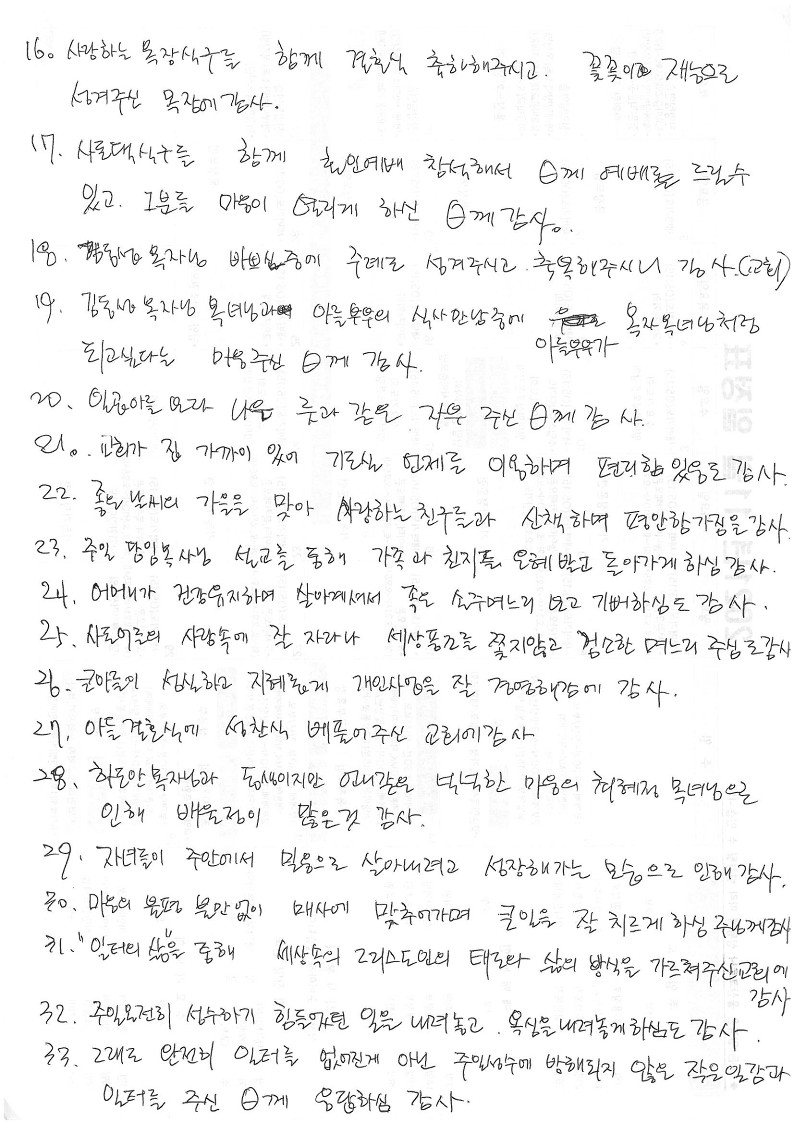 16. 사랑하는 목장식구들 함께 결혼식 축하해주시고. 꽃꽂이 재능으로
섬겨주신 목장에 감사.
17. 사돈댁식구들 함께 혼인예배 참석해서 θ께 예배를 드릴수
있고. 그분들 마음이 열리게 하신 θ께 감사.
18. 목자님 바쁘심중에 주례로 섬겨주시고 축복해주시니 감사.(교회)
19. 김동섭 목자님 목녀님과 아들부부의 식사만남중에 목자목녀님처럼
아들부부가
되고싶다는 마음주신 θ께 감사.
20. 일곱아들 보다 나은 룻과 같은 자부 주신 θ께 감사.
21. 교회가 집 가까이 있어 기도실 언제든 이용하며 편리함 있음도 감사.
22. 좋은날씨의 가을을 맞아 사랑하는 친구들과 산책하며 평안함가짐을감사.
23. 주일 담임목사님 설교를 통해 가족과 친지들 은혜받고 돌아가게 하심감사.
24. 어머니가 건강유지하며 살아계셔서 좋은 손주며느리 보고 기뻐하심도 감사.
25. 사랑속에 잘 자라나 세상풍조를 쫓지않고 검소한 며느리 주심도감사
26. 큰아들이 성실하고 지혜롭게 개인사업을 잘 경영해감에 감사.
27. 아들결혼식에 성찬식 베풀어주신 교회에감사
28. 목자님과 동생이지만 언니같은 넉넉한 마음의 최혜정 목녀님으로
인해 배울점이 많은것 감사.
29. 자녀들이 주안에서 믿음으로 살아내려고 성장해가는 모습으로 인해감사.
30. 마음의 불평 불안없이 매사에 맞추어가며 큰일을 잘 치르게 하심 주님께감사
31. "일터의 삶"을 통해 세상속의 그리스도인의 태도와 삶의 방식을 가르쳐주신교회에
감사
32. 주일온전히 성수하기 힘들었던 일을 내려놓고. 욕심을내려놓게하심도 감사.
33. 그래도 완전히 일터를 없어진게 아닌 주일성수에 방해되지 않은 작은일감과
일터를 주신 θ께 응답하심 감사.